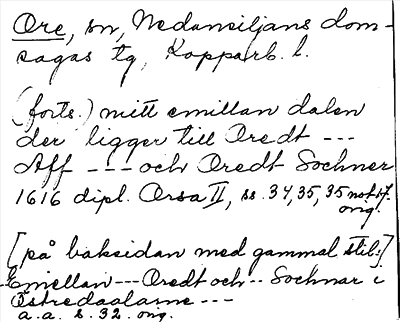 Ore, sn, Nedansiljans dom-
sagas tg, Kopparb. l.
(forts.) mitt emillan dalen
der ligger till Oredt ---
Aff --- och Oredt Sochner
1616 dipl. Orsa II, ss. 34, 35, 35 not 17.
orig.
[på baksidan med gammal stil:]
Emellan --- Oredt och -- Sochnar i
Östredaalarne ---
a.a. s. 32. orig.